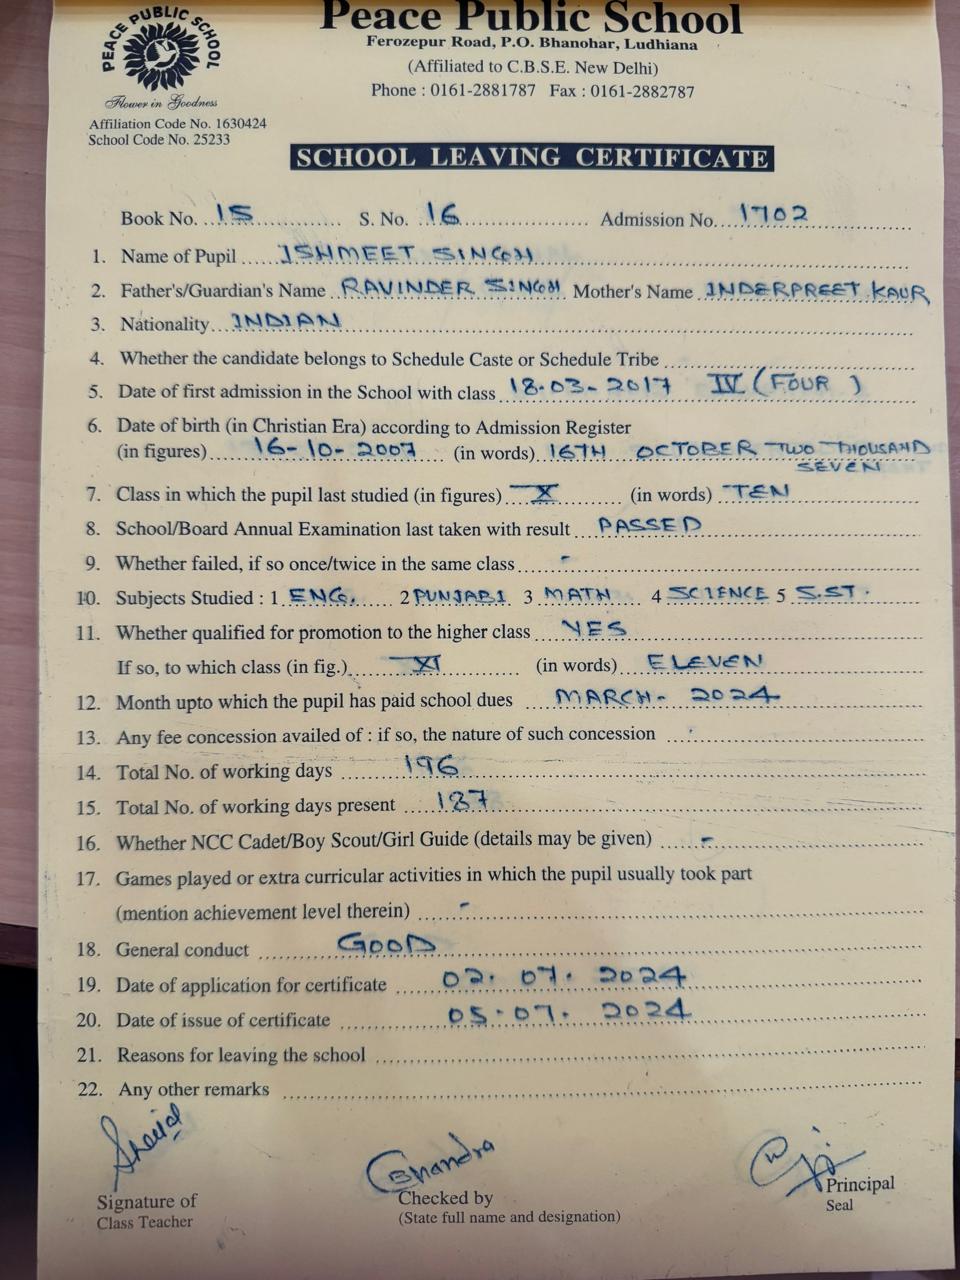 PEACE PUBLIC SCHOOL
Flower in Goodness
Peace Public School
Ferozepur Road, P.O. Bhanohar, Ludhiana
(Affiliated to C.B.S.E. New Delhi)
Phone : 0161-2881787 Fax : 0161-2882787
Affiliation Code No. 1630424
School Code No. 25233
SCHOOL LEAVING CERTIFICATE
Book No. 15 S. No. 16 Admission No. 1702
1. Name of Pupil ISHMEET SINGH
2. Father's/Guardian's Name RAVINDER SINGH Mother's Name INDERPREET KAUR
3. Nationality INDIAN
4. Whether the candidate belongs to Schedule Caste or Schedule Tribe
5. Date of first admission in the School with class 18-03-2017 IV (FOUR )
6. Date of birth (in Christian Era) according to Admission Register
(in figures) 16-10-2007 (in words) 16TH OCTOBER TWO THOUSAND
SEVEN
7. Class in which the pupil last studied (in figures) X (in words) TEN
8. School/Board Annual Examination last taken with result PASSED
9. Whether failed, if so once/twice in the same class -
10. Subjects Studied : 1 ENG. 2 PUNJABI 3 MATH 4 SCIENCE 5 S.ST.
11. Whether qualified for promotion to the higher class YES
If so, to which class (in fig.) XI (in words) ELEVEN
12. Month upto which the pupil has paid school dues MARCH - 2024
13. Any fee concession availed of : if so, the nature of such concession
14. Total No. of working days 196
15. Total No. of working days present 187
16. Whether NCC Cadet/Boy Scout/Girl Guide (details may be given) -
17. Games played or extra curricular activities in which the pupil usually took part
(mention achievement level therein) -
18. General conduct GOOD
19. Date of application for certificate 02.07.2024
20. Date of issue of certificate 05.07.2024
21. Reasons for leaving the school
22. Any other remarks
Chandra
Signature of
Class Teacher
Checked by
(State full name and designation)
Principal
Seal